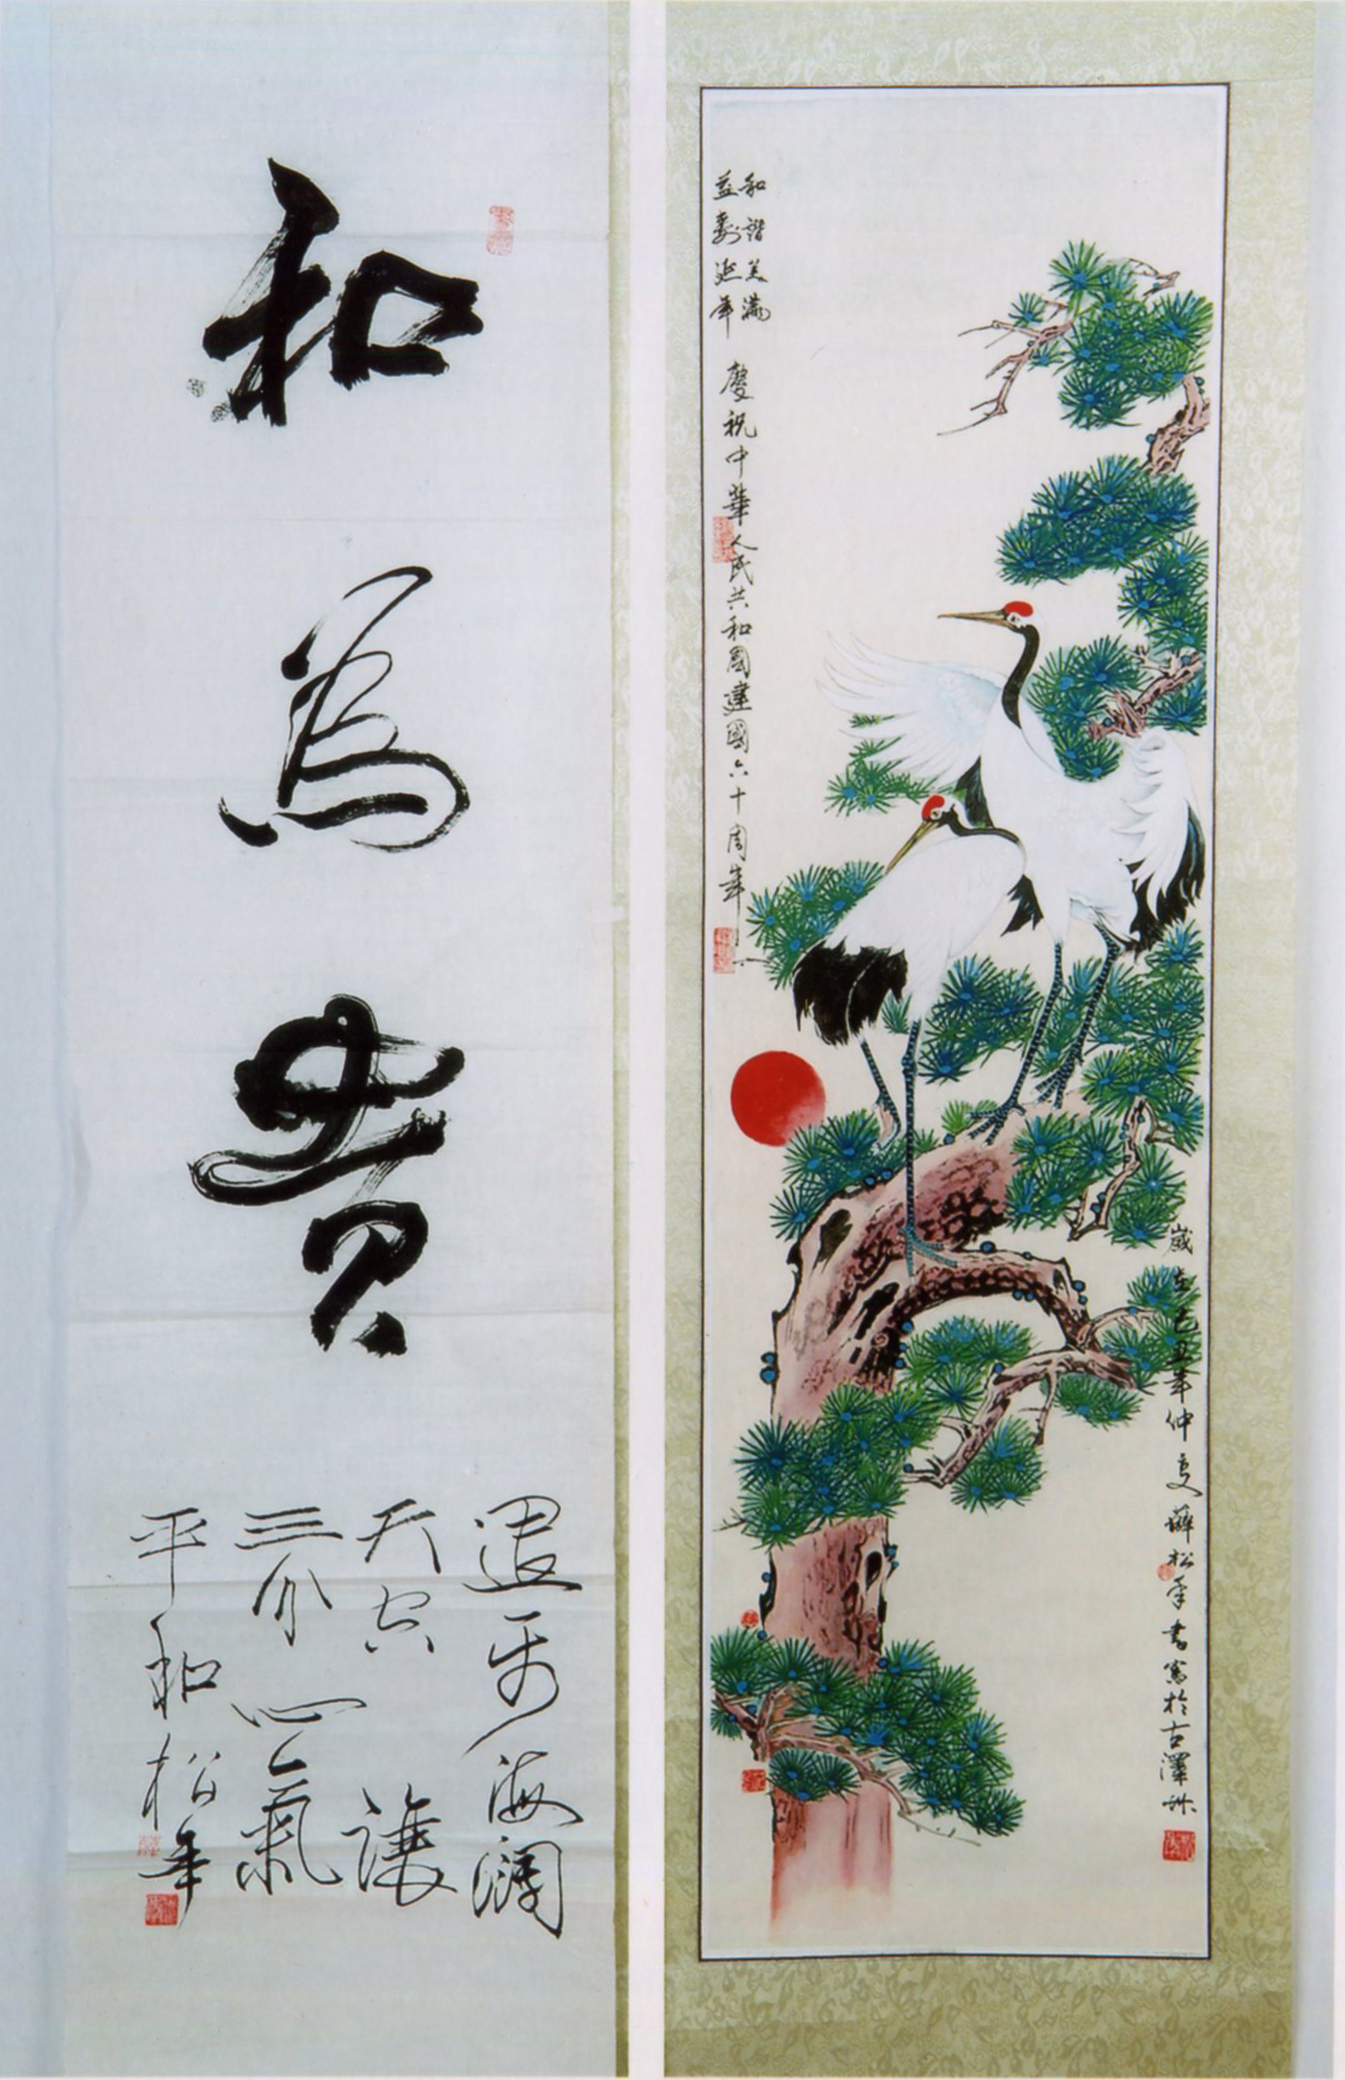 和為貴
退步海闊
天空讓
三分心氣
平和松年
和諧美滿
益壽延年
慶祝中華人民共和國建國六十周年
歲在己丑年仲夏薛松年書寫於古澤州